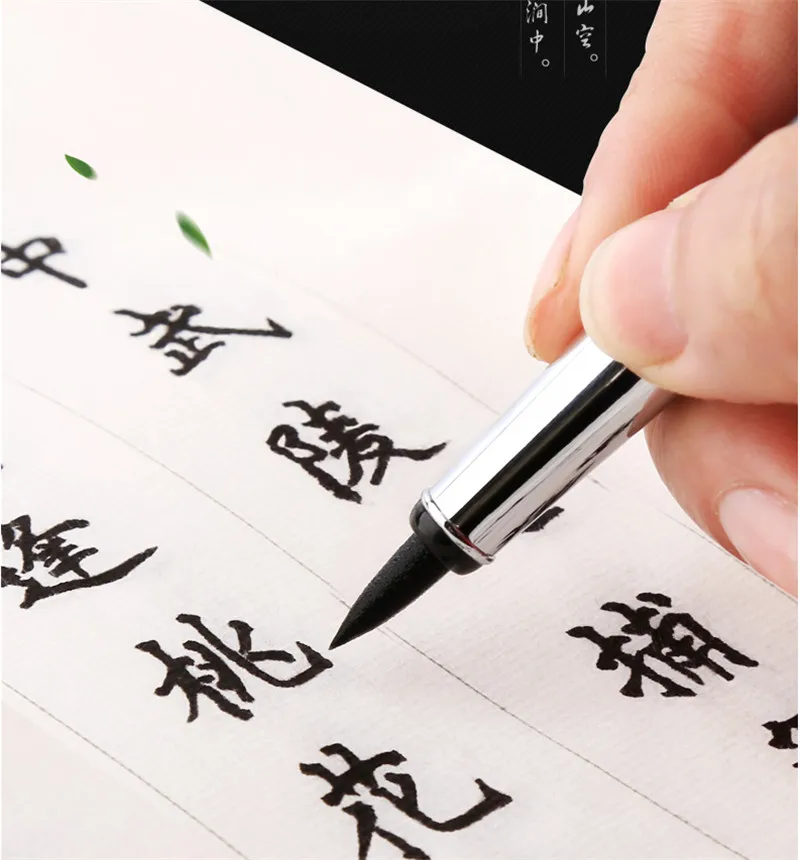 山空。
澗中。
中武陵捕
逢桃花